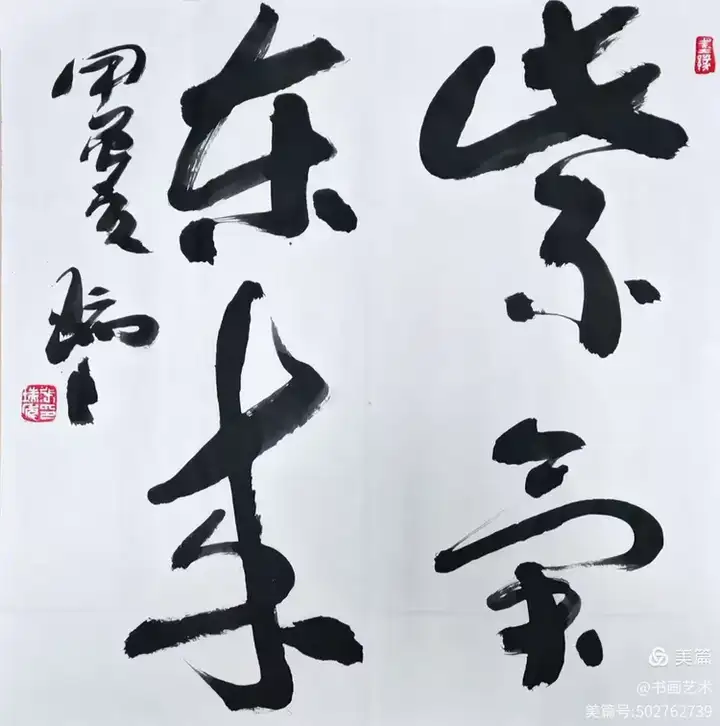 紫氣
東來
甲辰夏
美篇
@书画艺术
美篇号:502762739